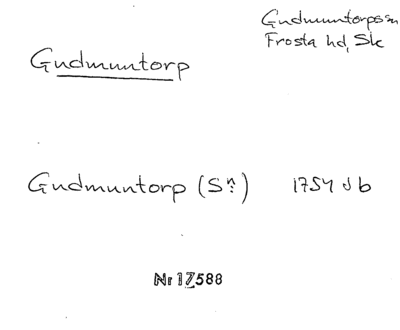 Gudmuntorps sn
Frosta hd, Sk
Gudmuntorp
Gudmuntorp (Sn?) 1754 Jb
Nr 17588